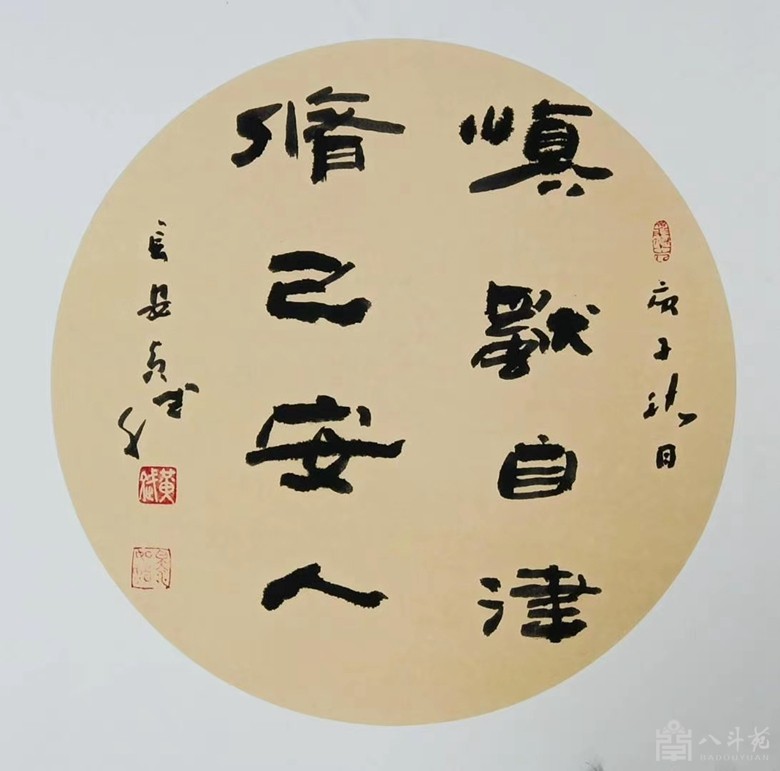 庚子秋日
慎獨自律
脩己安人
黃斌
八斗苑
BADOUYUAN